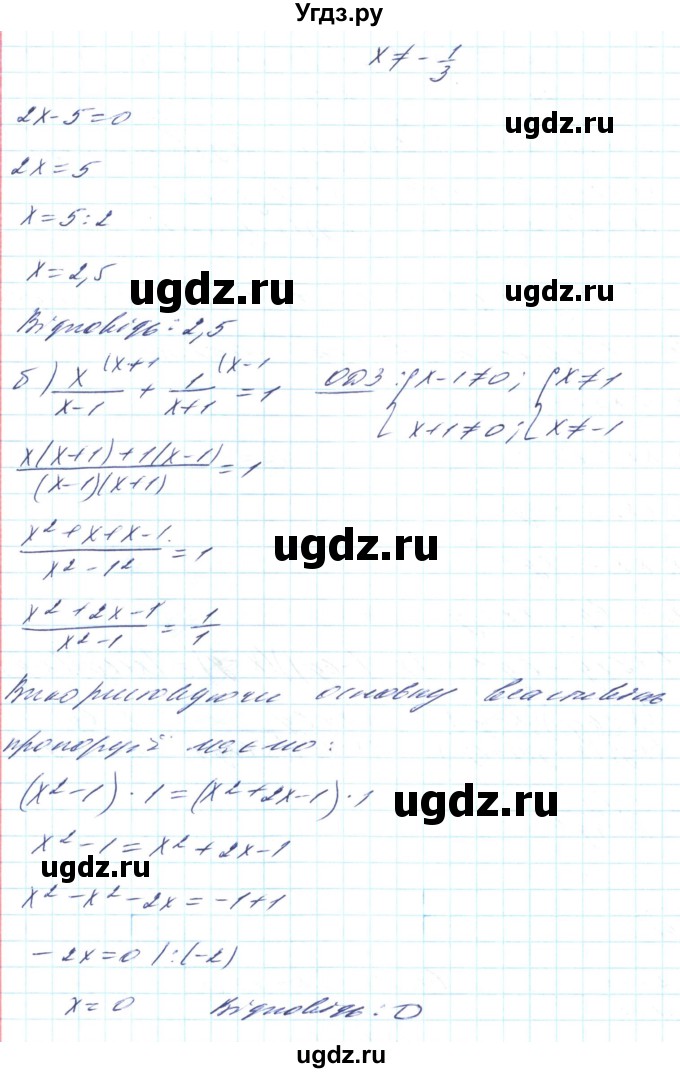 Угдз.ру
x ≠ -1/3
2x-5=0
ugdz.ru
2x=5
x=5:2
x=2,5
ugdz.ru
ugdz.ru
Відповідь: 2,5
б) x/(x-1) (x+1 + 1/(x+1) (x-1 = 1 ОДЗ: { x-1≠0; { x≠1
{ x+1≠0; { x≠-1
(x(x+1)+1(x-1))/((x-1)(x+1)) = 1
(x²+x+x-1)/(x²-1²) = 1
ugdz.ru
ugdz.ru
(x²+2x-1)/(x²-1) = 1/1
Використовуючи основну властивість
пропорції маємо:
(x²-1)·1=(x²+2x-1)·1
ugdz.ru
x²-1=x²+2x-1
ugdz.ru
x²-x²-2x=-1+1
-2x=0 /:(-2)
ugdz.ru
x=0 Відповідь: 0
ugdz.ru